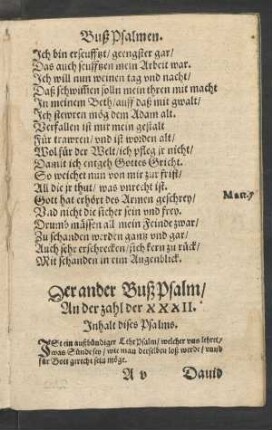 Buß Psalmen.
Ich bin erseufftzt / geengster gar /
Das auch seufftzen mein Arbeit war.
Ich will nun weinen tag vnd nacht /
Daß schwimen solln mein thren mit macht
In meinem Beth / auff daß mit gwalt /
Ich stewren mög dem Adam alt.
Verfallen ist mir mein gestalt
Für trawren / vnd ist worden alt /
Wol für der Welt / ich pfleg jr nicht /
Damit ich entgeh Gottes Gricht.
So weichet nun von mir zur frist /
All die jr thut / was vnrecht ist.
Gott hat erhört des Armen geschrey /
Vnd macht die sicher sein vnd frey.
Drumb müssen all mein Feinde zwar /
Zu schanden werden gantz vnd gar /
Auch sehr erschrecken / sich kern zu rück /
Mit schanden in eim Augenblick.
Matt. 7
Der ander Buß Psalm /
An der zahl der XXXII.
Inhalt dises Psalms.
ISt ein außbündiger Lehr Psalm / welcher vns lehret /
was Sünde sey / wie man derselben loß werde / vnnd
für Gott gerecht sein möge.
A v
Dauid